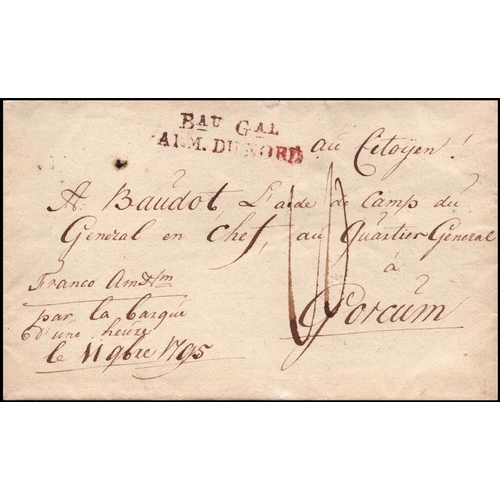 BAU GAL
ARM. DU NORD
au Citoÿen!
A. Baudot L'aide de Camp du
General en Chef, au Quartier General
à
Gorcum
Franco Amstm
par la barque
d'une heure
le 11 9bre 1795